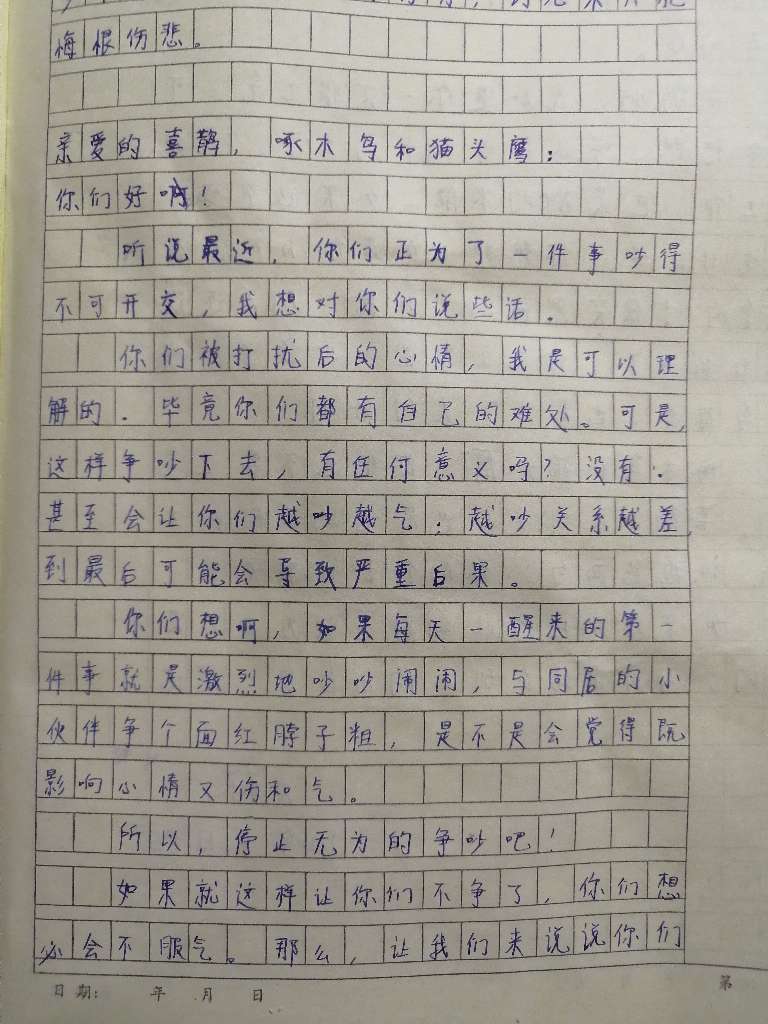 悔恨伤悲。
亲爱的喜鹊，啄木鸟和猫头鹰：
你们好啊！
听说最近，你们正为了一件事吵得
不可开交，我想对你们说些话。
你们被打扰后的心情，我是可以理
解的．毕竟你们都有自己的难处。可是，
这样争吵下去，有任何意义吗？没有．
甚至会让你们越吵越气；越吵关系越差，
到最后可能会导致严重后果。
你们想啊，如果每天一醒来的第一
件事就是激烈地吵吵闹闹，与同居的小
伙伴争个面红脖子粗，是不是会觉得既
影响心情又伤和气。
所以，停止无为的争吵吧！
如果就这样让你们不争了，你们想
必会不服气。那么，让我们来说说你们
日期：　年　月　日
第